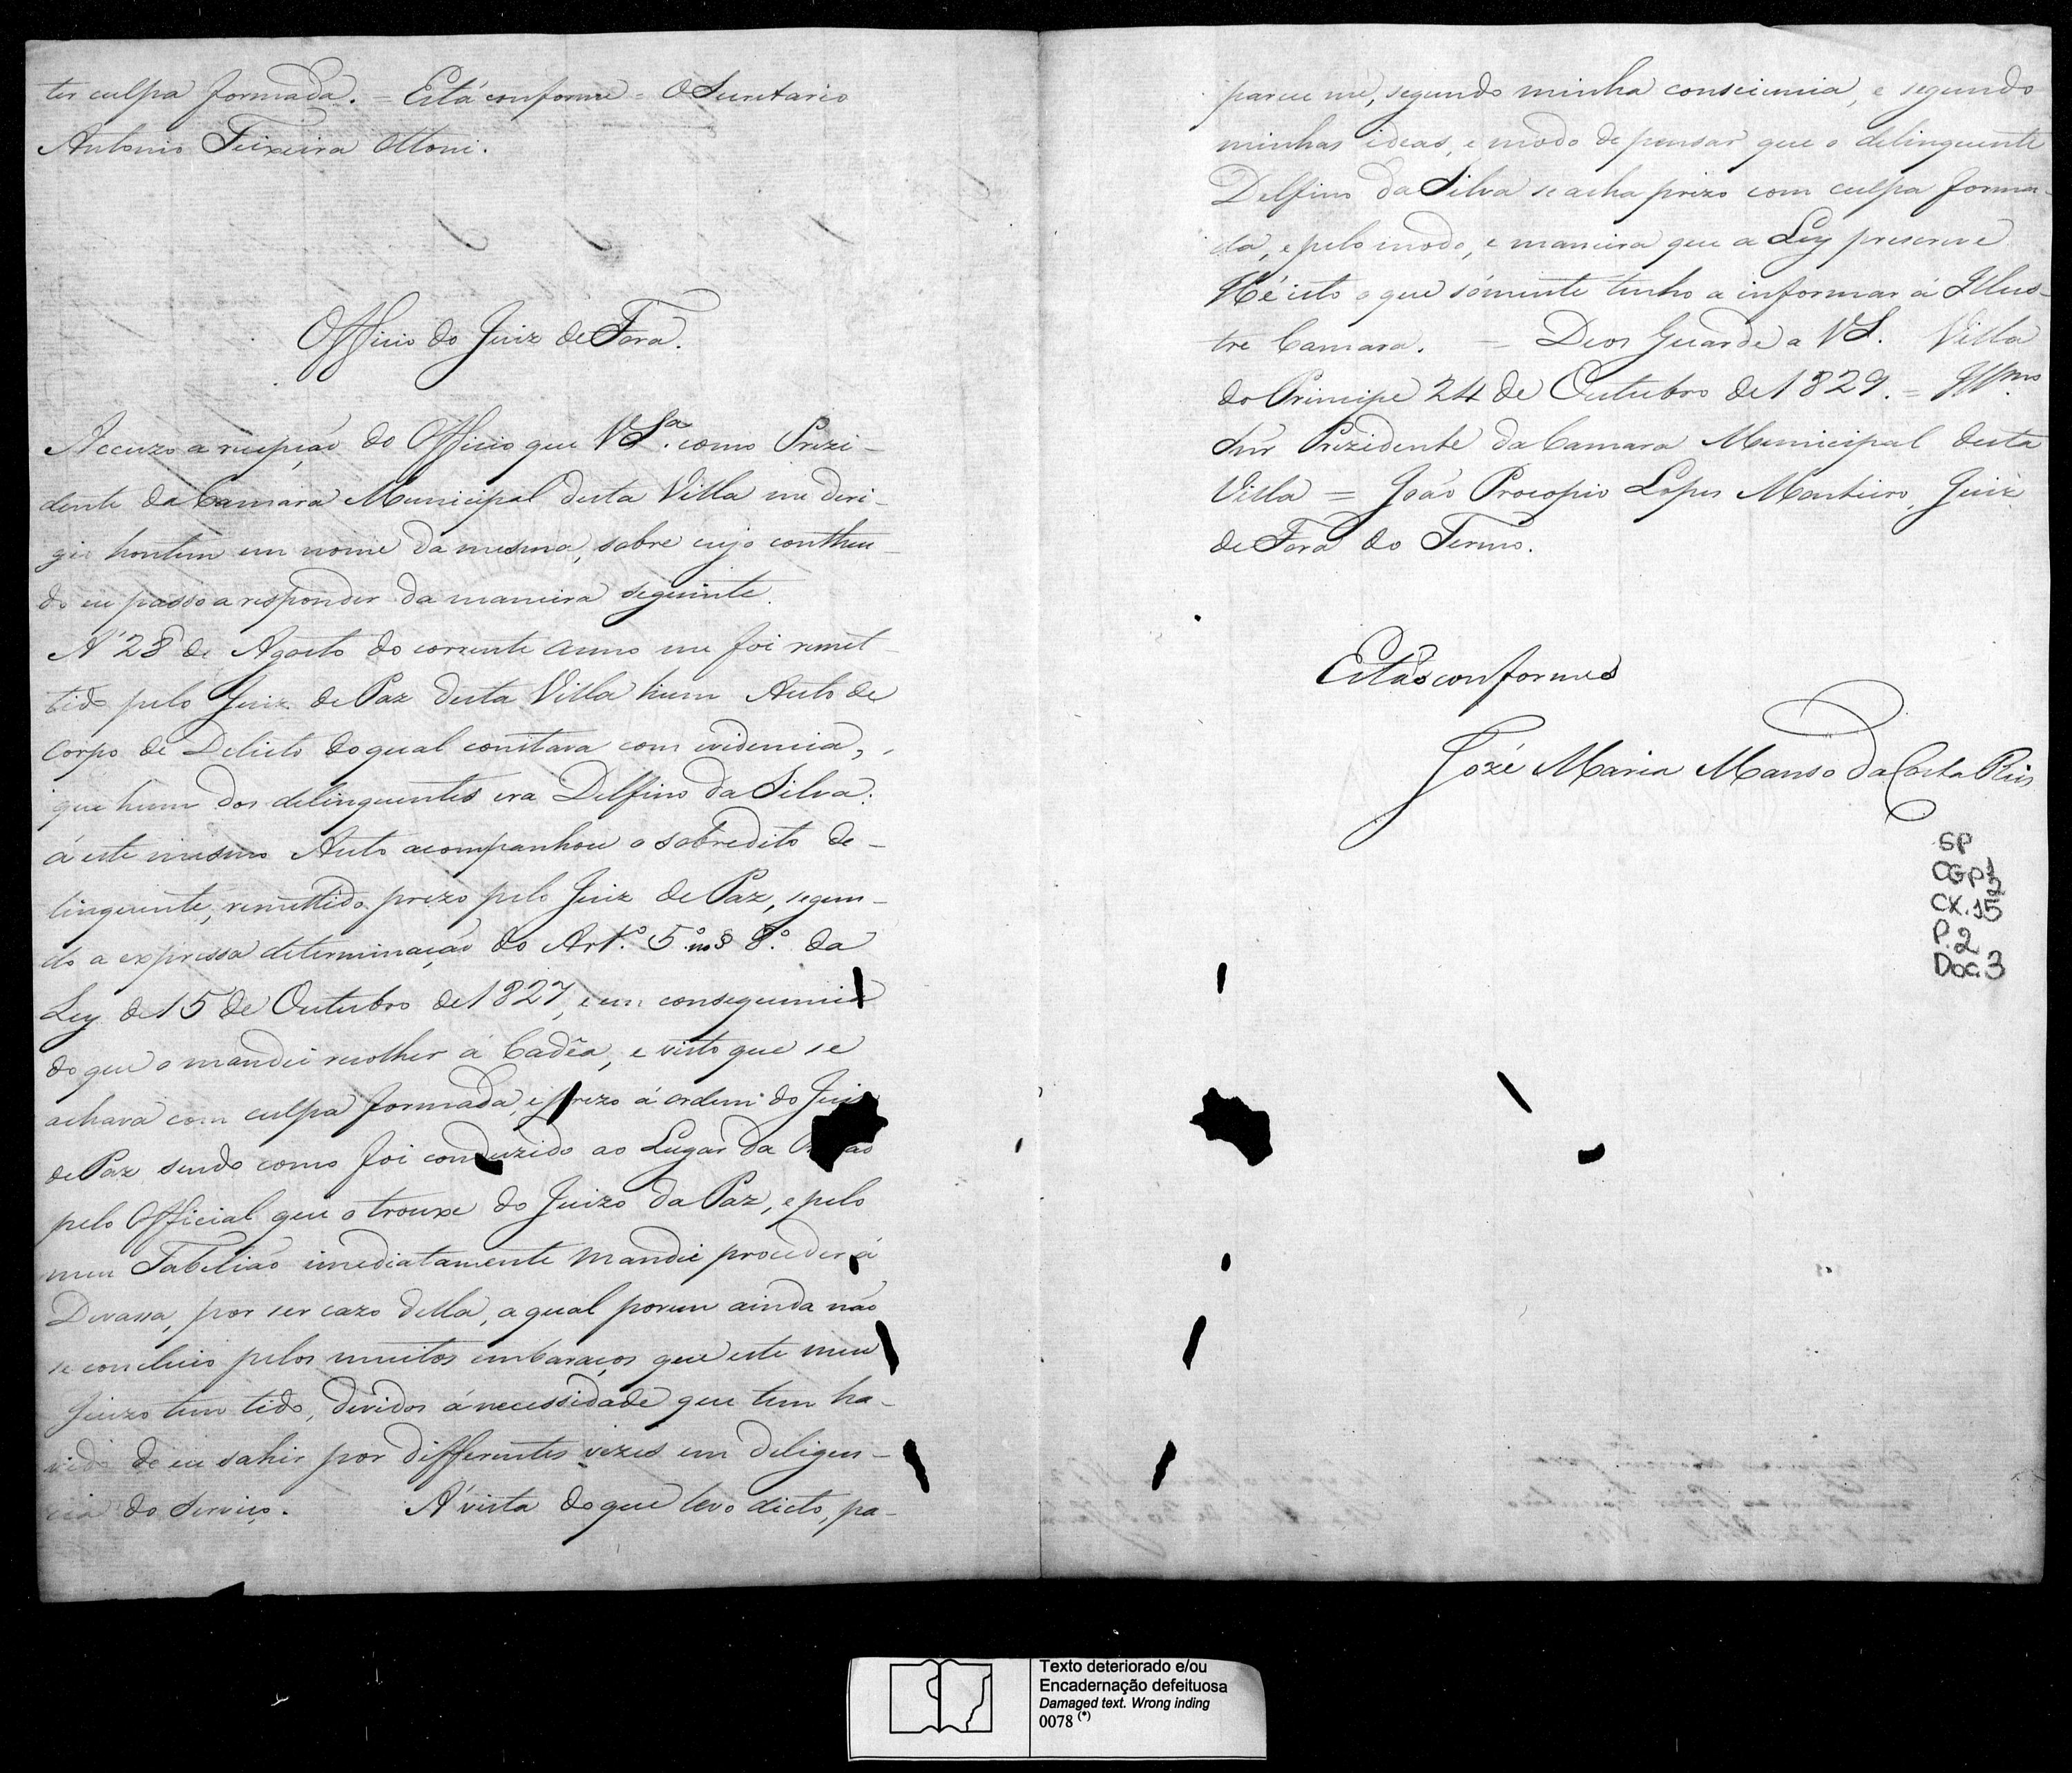 ter culpa formada. = Está conforme = O Secretario
Antonio Teixeira Ottoni.
Officio do Juiz de Fora.
Accuzo a recepção do Officio que V S.ª como Prezi-
dente da Camara Municipal desta Villa me deri-
gio hontem em nome da mesma, sobre cujo contheu-
do eu passo a responder da maneira seguinte.
A' 28 de Agosto do corrente anno me foi remet-
tido pelo Juiz de Paz desta Villa hum Auto de
Corpo de Delicto do qual constava com evidencia,
que hum dos delinquentes era Delfino da Silva:
á este mesmo Auto acompanhou o sobredito de-
linquente, remettido prezo pelo Juiz de Paz, segun-
do a expressa determinação do Art.º 5.º no § 8.º da
Ley de 15 de Outubro de 1827, e em consequencia
do que o mandei recolher á Cadêa, e visto que se
achava com culpa formada, e prezo á ordem do Juiz
de Paz sendo como foi conduzido ao Lugar da
pelo Official que o trouxe do Juizo da Paz, e pelo
meu Tabelião imediatamente mandei proceder á
Devassa, por ser cazo della, a qual porem ainda não
se concluio pelos muitos embaraços que este meu
Juizo tem tido, devidos á necessidade que tem ha-
vido de eu sahir por differentes vezes em deligen-
cia do Serviço. A' vista do que levo dicto, pa-
parece me, segundo minha consciencia, e segundo
minhas ideas, e modo de pensar que o delinquente
Delfino da Silva se acha prezo com culpa forma-
da, e pelo modo, e maneira que a Ley prescreve
Hé isto o que sómente tenho a informar á Illus-
tre Camara. = Deos Guarde a V S. Villa
do Principe 24 de Outubro de 1829. = Ill.mo
Snr Prezidente da Camara Municipal desta
Villa = João Procopio Lopes Monteiro, Juiz
de Fora do Termo.
Estão conformes
Jozé Maria Manso da Costa Reis
SP
CGP1/2
CX.15
P.2
Doc.3
Texto deteriorado e/ou
Encadernação defeituosa
Damaged text. Wrong inding
0078 (*)